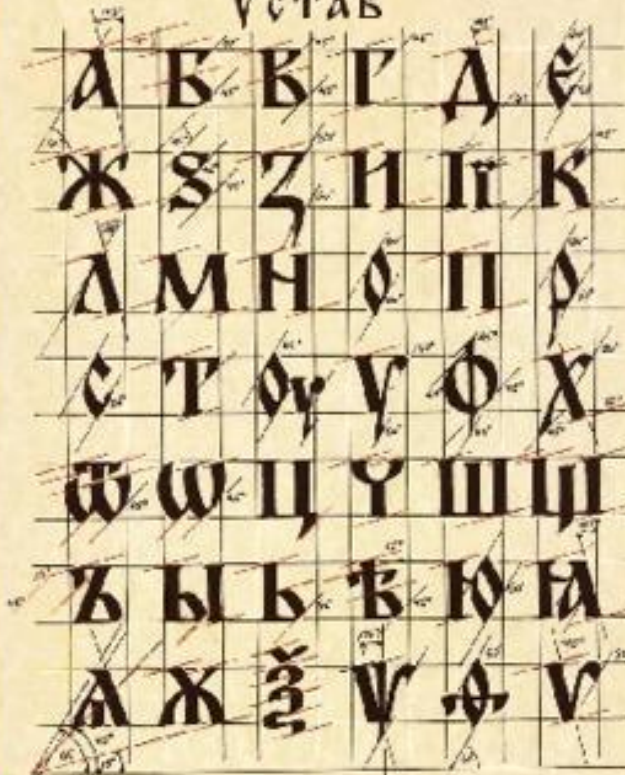 УСТАВ
А Б В Г Д Є
Ж Ѕ З И Ії К
Л М Н О П Р
С Т Оу Ѵ Ф Х
Ѿ Ѡ Ц Ч Ш Щ
Ъ Ы Ь Ѣ Ю Ꙗ
Ѧ Ѫ Ѯ Ѱ Ѳ Ѵ